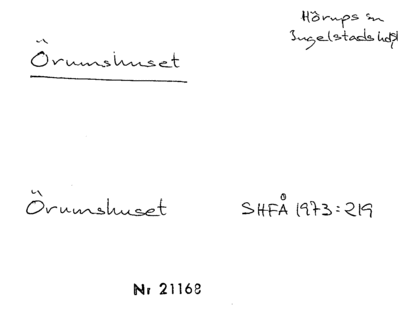 Hörups sn
Ingelstads hd
Örumshuset
Örumshuset SHFÅ 1973:219
Nr 21168